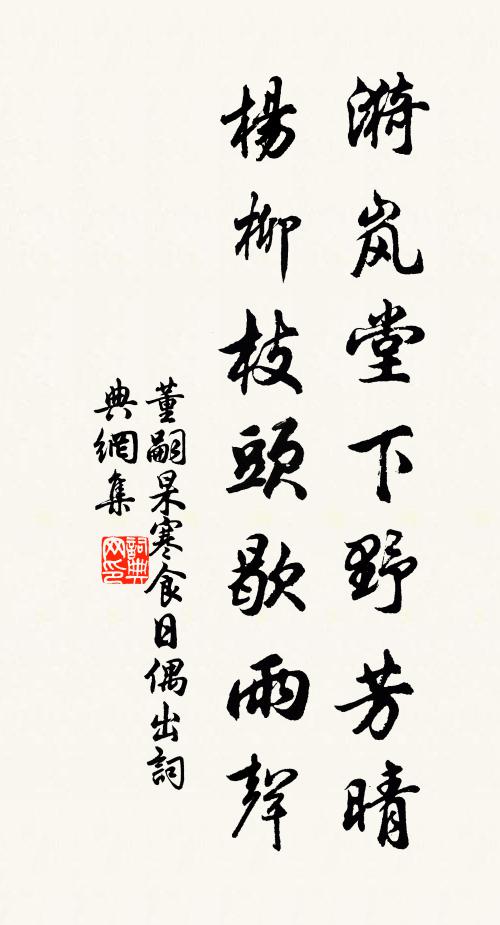 漪岚堂下野芳晴
楊柳枝頭歇雨聲
董嗣杲寒食日偶出詞
典網集
詞典
网印